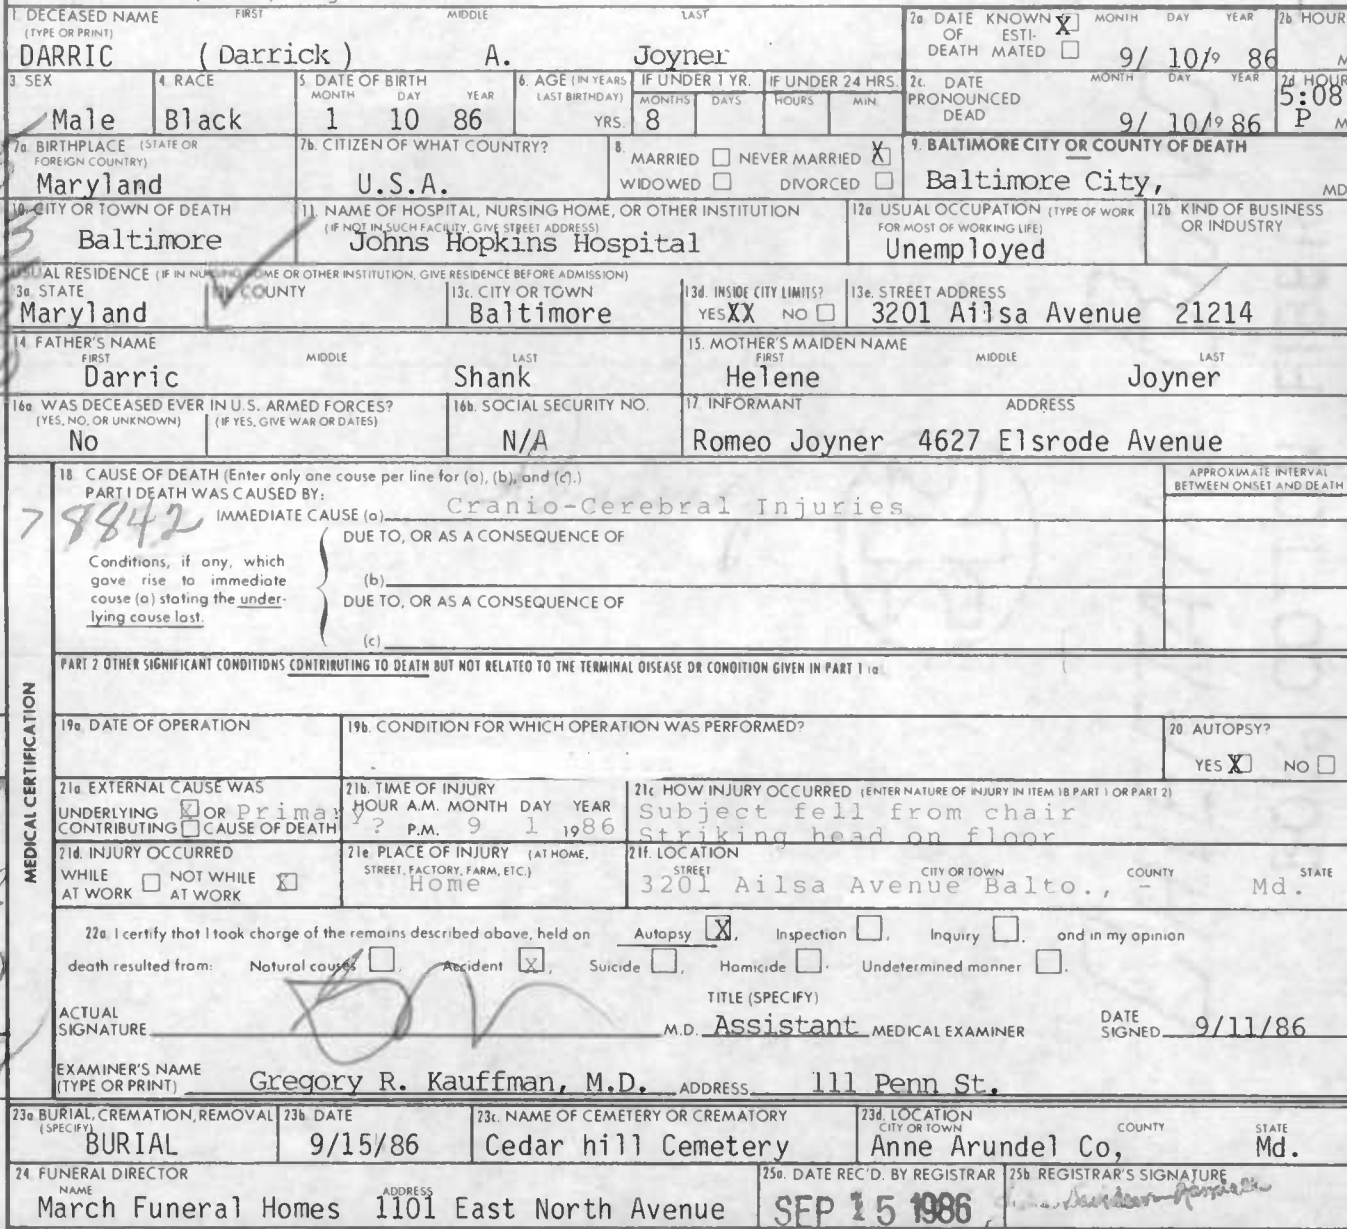 1 DECEASED NAME FIRST MIDDLE LAST
(TYPE OR PRINT)
DARRIC (Darrick) A. Joyner
2a DATE KNOWN X MONTH DAY YEAR
OF ESTI-
DEATH MATED
9/ 10/19 86
2b HOUR
M
3 SEX
Male
4 RACE
Black
5 DATE OF BIRTH
MONTH DAY YEAR
1 10 86
6. AGE (IN YEARS
LAST BIRTHDAY)
YRS.
IF UNDER 1 YR.
MONTHS DAYS
8
IF UNDER 24 HRS.
HOURS MIN.
2c. DATE MONTH DAY YEAR
PRONOUNCED
DEAD
9/ 10/19 86
2d HOUR
5:08
P M
7a BIRTHPLACE (STATE OR
FOREIGN COUNTRY)
Maryland
7b. CITIZEN OF WHAT COUNTRY?
U.S.A.
8. MARRIED NEVER MARRIED X
WIDOWED DIVORCED
9. BALTIMORE CITY OR COUNTY OF DEATH
Baltimore City, MD
10. CITY OR TOWN OF DEATH
Baltimore
11. NAME OF HOSPITAL, NURSING HOME, OR OTHER INSTITUTION
(IF NOT IN SUCH FACILITY, GIVE STREET ADDRESS)
Johns Hopkins Hospital
12a USUAL OCCUPATION (TYPE OF WORK
FOR MOST OF WORKING LIFE)
Unemployed
12b. KIND OF BUSINESS
OR INDUSTRY
USUAL RESIDENCE (IF IN NURSING HOME OR OTHER INSTITUTION, GIVE RESIDENCE BEFORE ADMISSION)
13a. STATE
Maryland
COUNTY
13c. CITY OR TOWN
Baltimore
13d. INSIDE CITY LIMITS?
YES XX NO
13e. STREET ADDRESS
3201 Ailsa Avenue 21214
14 FATHER'S NAME
FIRST MIDDLE LAST
Darric Shank
15. MOTHER'S MAIDEN NAME
FIRST MIDDLE LAST
Helene Joyner
16a WAS DECEASED EVER IN U.S. ARMED FORCES?
(YES, NO, OR UNKNOWN) (IF YES, GIVE WAR OR DATES)
No
16b. SOCIAL SECURITY NO.
N/A
17 INFORMANT ADDRESS
Romeo Joyner 4627 Elsrode Avenue
MEDICAL CERTIFICATION
18 CAUSE OF DEATH (Enter only one cause per line for (a), (b), and (c).)
PART I DEATH WAS CAUSED BY:
IMMEDIATE CAUSE (a) Cranio-Cerebral Injuries
7 8842
APPROXIMATE INTERVAL
BETWEEN ONSET AND DEATH
DUE TO, OR AS A CONSEQUENCE OF
Conditions, if any, which
gave rise to immediate
cause (a) stating the under-
lying cause last.
(b)
DUE TO, OR AS A CONSEQUENCE OF
(c)
PART 2 OTHER SIGNIFICANT CONDITIONS CONTRIBUTING TO DEATH BUT NOT RELATED TO THE TERMINAL DISEASE OR CONDITION GIVEN IN PART 1 (a)
19a. DATE OF OPERATION
19b. CONDITION FOR WHICH OPERATION WAS PERFORMED?
20 AUTOPSY?
YES X NO
21a EXTERNAL CAUSE WAS
UNDERLYING X OR Primary
CONTRIBUTING CAUSE OF DEATH
21b. TIME OF INJURY
HOUR A.M. MONTH DAY YEAR
? P.M. 9 1 1986
21c HOW INJURY OCCURRED (ENTER NATURE OF INJURY IN ITEM 18 PART 1 OR PART 2)
Subject fell from chair
Striking head on floor
21d. INJURY OCCURRED
WHILE NOT WHILE X
AT WORK AT WORK
21e PLACE OF INJURY (AT HOME,
STREET, FACTORY, FARM, ETC.)
Home
21f. LOCATION
STREET CITY OR TOWN COUNTY STATE
3201 Ailsa Avenue Balto., - Md.
22a. I certify that I took charge of the remains described above, held on Autopsy X, Inspection , Inquiry , and in my opinion
death resulted from: Natural causes , Accident X, Suicide , Homicide . Undetermined manner .
ACTUAL
SIGNATURE
M.D.
TITLE (SPECIFY)
Assistant MEDICAL EXAMINER
DATE
SIGNED 9/11/86
EXAMINER'S NAME
(TYPE OR PRINT) Gregory R. Kauffman, M.D. ADDRESS 111 Penn St.
23a BURIAL, CREMATION, REMOVAL
(SPECIFY)
BURIAL
23b. DATE
9/15/86
23c. NAME OF CEMETERY OR CREMATORY
Cedar hill Cemetery
23d. LOCATION
CITY OR TOWN COUNTY STATE
Anne Arundel Co, Md.
24 FUNERAL DIRECTOR
NAME ADDRESS
March Funeral Homes 1101 East North Avenue
25a. DATE REC'D. BY REGISTRAR
SEP 15 1986
25b REGISTRAR'S SIGNATURE